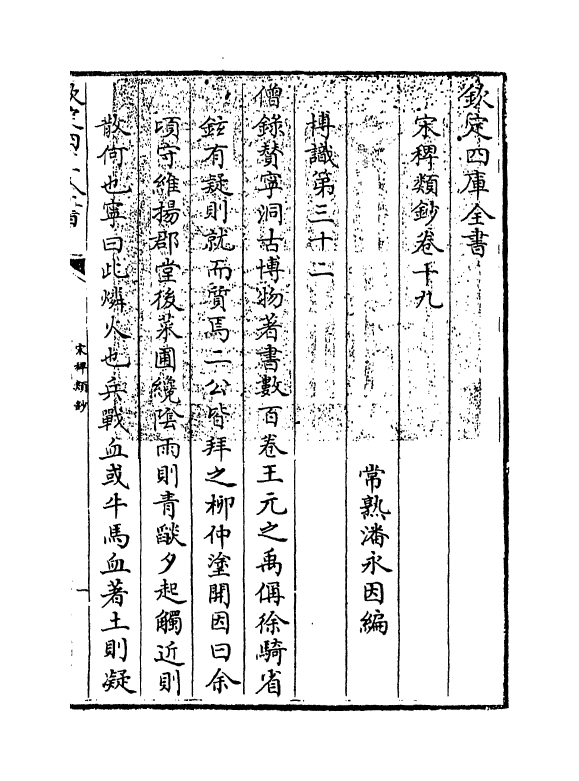 欽定四庫全書
宋稗類鈔卷十九
常熟潘永因編
博識第三十二
僧錄贊寧洞古博物著書數百卷王元之禹偁徐騎省
鉉有疑則就而質焉二公皆拜之柳仲塗開因曰余
頃守維揚郡堂後菜圃纔陰雨則青燄夕起觸近則
散何也寧曰此燐火也兵戰血或牛馬血著土則凝
宋稗類鈔
一